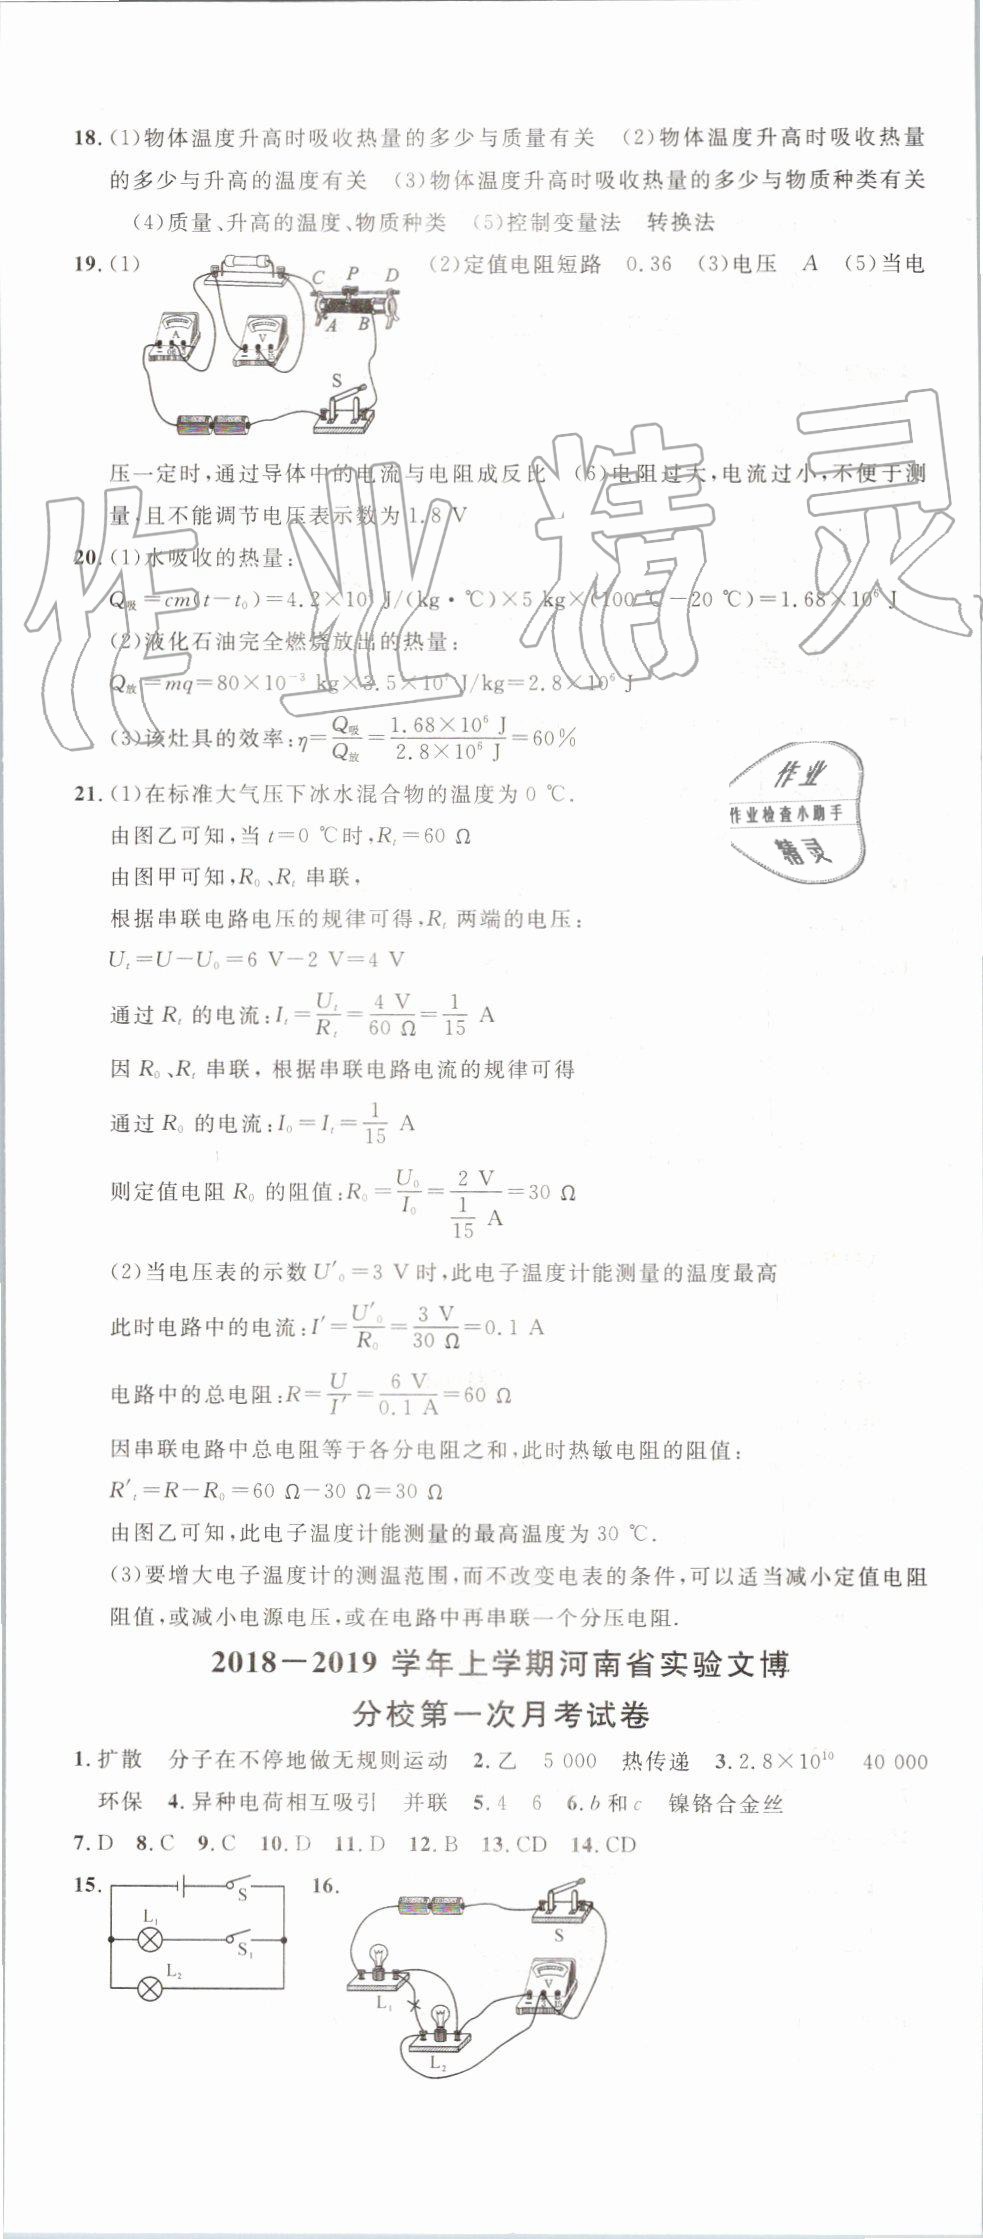 18. (1)物体温度升高时吸收热量的多少与质量有关 (2)物体温度升高时吸收热量
的多少与升高的温度有关 (3)物体温度升高时吸收热量的多少与物质种类有关
(4)质量、升高的温度、物质种类 (5)控制变量法 转换法
19. (1) (2)定值电阻短路 0.36 (3)电压 A (5)当电
C P D
A B
A
V
S
压一定时,通过导体中的电流与电阻成反比 (6)电阻过大,电流过小,不便于测
量,且不能调节电压表示数为1.8 V
20. (1)水吸收的热量:
Q吸=cm(t-t₀)=4.2×10 J/(kg·℃)×5 kg×(100 ℃-20 ℃)=1.68×10⁶ J
(2)液化石油完全燃烧放出的热量:
Q放=mq=80×10⁻³ kg×3.5×10 J/kg=2.8×10⁶ J
(3)该灶具的效率:η=Q吸/Q放=1.68×10⁶ J/2.8×10⁶ J=60%
21. (1)在标准大气压下冰水混合物的温度为0 ℃.
由图乙可知,当t=0 ℃时,Rₜ=60 Ω
由图甲可知,R₀、Rₜ串联,
根据串联电路电压的规律可得,Rₜ两端的电压:
Uₜ=U-U₀=6 V-2 V=4 V
通过Rₜ的电流:Iₜ=Uₜ/Rₜ=4 V/60 Ω=1/15 A
因R₀、Rₜ串联,根据串联电路电流的规律可得
通过R₀的电流:I₀=Iₜ=1/15 A
则定值电阻R₀的阻值:R₀=U₀/I₀=2 V/(1/15 A)=30 Ω
(2)当电压表的示数U′₀=3 V时,此电子温度计能测量的温度最高
此时电路中的电流:I′=U′₀/R₀=3 V/30 Ω=0.1 A
电路中的总电阻:R=U/I′=6 V/0.1 A=60 Ω
因串联电路中总电阻等于各分电阻之和,此时热敏电阻的阻值:
R′ₜ=R-R₀=60 Ω-30 Ω=30 Ω
由图乙可知,此电子温度计能测量的最高温度为30 ℃.
(3)要增大电子温度计的测温范围,而不改变电表的条件,可以适当减小定值电阻
阻值,或减小电源电压,或在电路中再串联一个分压电阻.
2018-2019 学年上学期河南省实验文博
分校第一次月考试卷
1. 扩散 分子在不停地做无规则运动 2. 乙 5 000 热传递 3. 2.8×10¹⁰ 40 000
环保 4. 异种电荷相互吸引 并联 5. 4 6 6. b和c 镍铬合金丝
7. D 8. C 9. C 10. D 11. D 12. B 13. CD 14. CD
15. 16.
S
L₁
S₁
L₂
S
V
L₁
L₂
作业精灵
作业
作业检查小助手
精灵